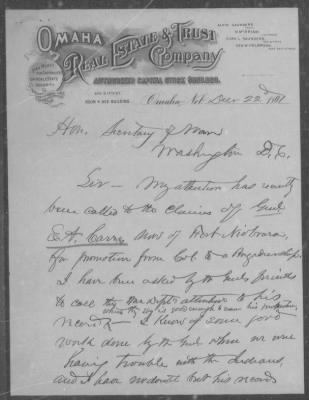 OMAHA
REAL ESTATE & TRUST
COMPANY
AUTHORIZED CAPITAL STOCK $500,000.
ALVIN SAUNDERS
ROOM 4 BEE BUILDING
Omaha, Neb Dec 22nd
Hon. Secretary of War
Washington D.C.
Sir – My attention has recently
been called to the claims of Genl
E.A. Carr now of Fort Niobrara,
for promotion from Col to a Brigadiership.
I have been asked by the Genls friends
to call the War Dept's attention to his
record – I know of some good
work done by the Genl when we were
having trouble with the Indians,
and I have no doubt but his record